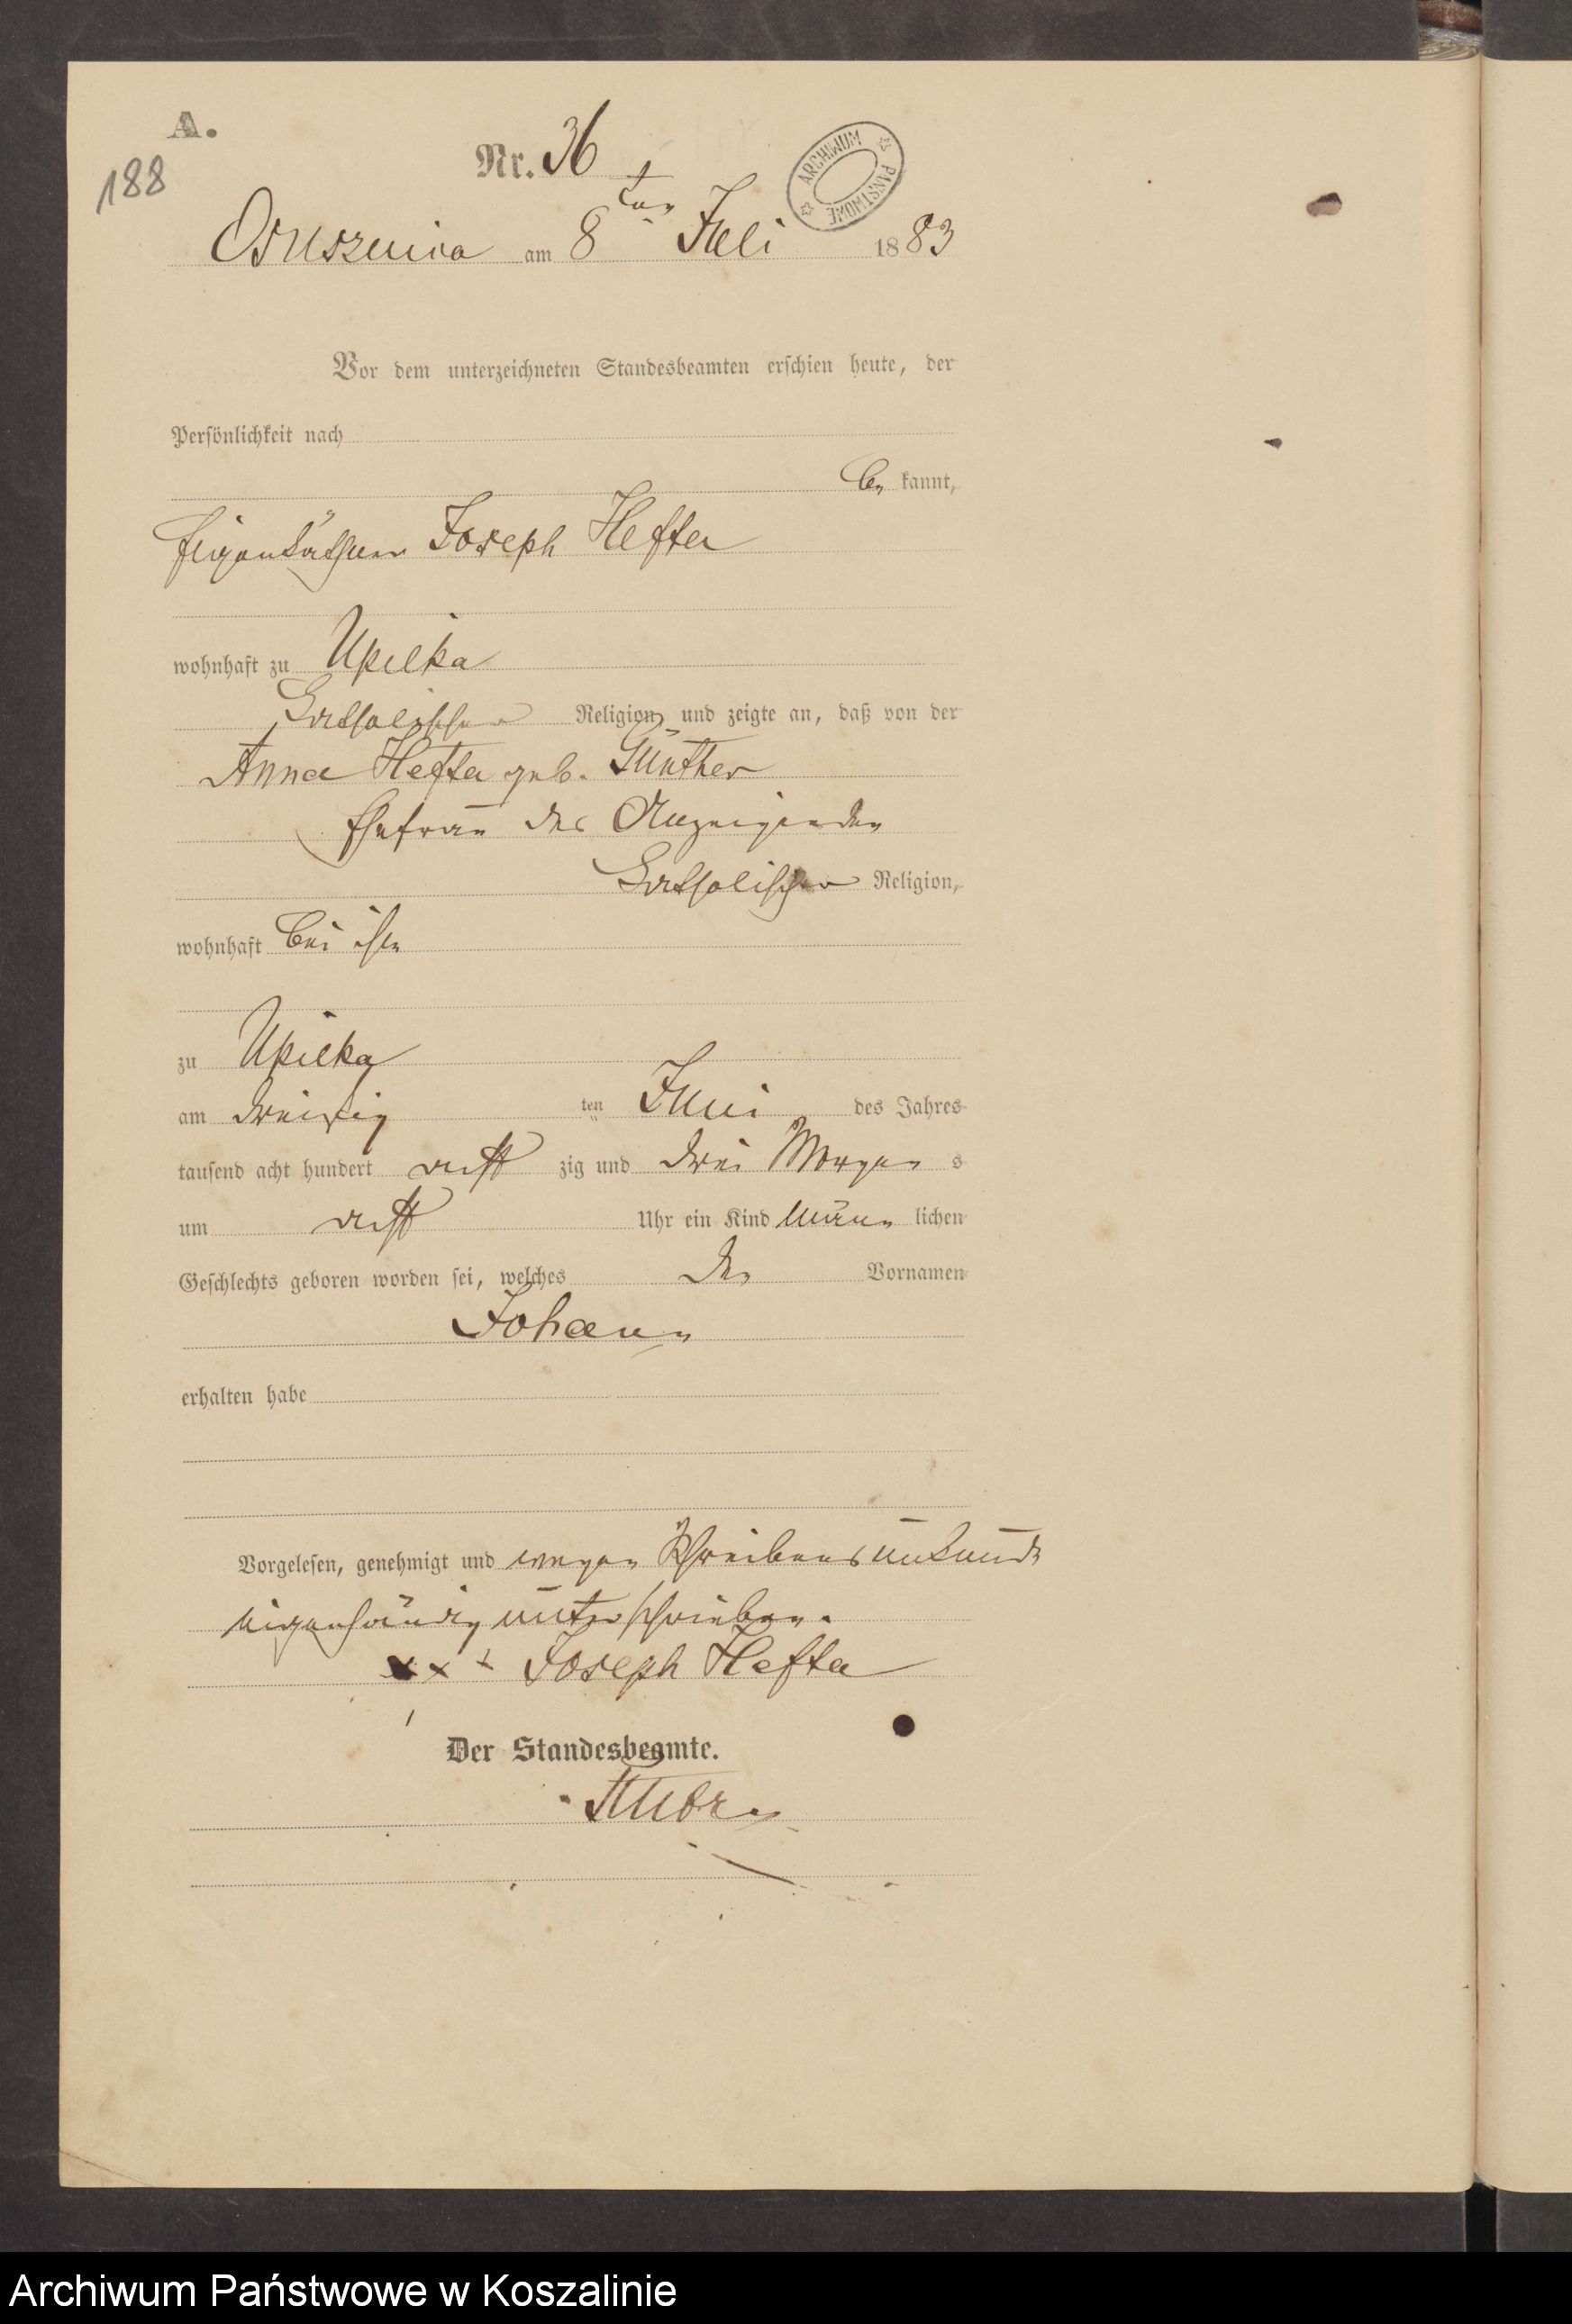 A.
188
Nr. 36
ARCHIWUM PAŃSTWOWE
Osusznica am 8 ten Juli 1883
Vor dem unterzeichneten Standesbeamten erschien heute, der
Persönlichkeit nach
be kannt,
Eigenkäthner Joseph Hefta
wohnhaft zu Upilka
katholischer Religion, und zeigte an, daß von der
Anna Hefta geb. Günther
Ehefrau des Anzeigenden
katholischer Religion,
wohnhaft bei ihm
zu Upilka
am dreißig ten Juni des Jahres
tausend acht hundert acht zig und drei Morgen s
um acht Uhr ein Kind männ lichen
Geschlechts geboren worden sei, welches den Vornamen
Johann
erhalten habe
Vorgelesen, genehmigt und wegen Schreibensunkunde
eigenhändig unterschrieben.
xxx Joseph Hefta
Der Standesbeamte.
Archiwum Państwowe w Koszalinie